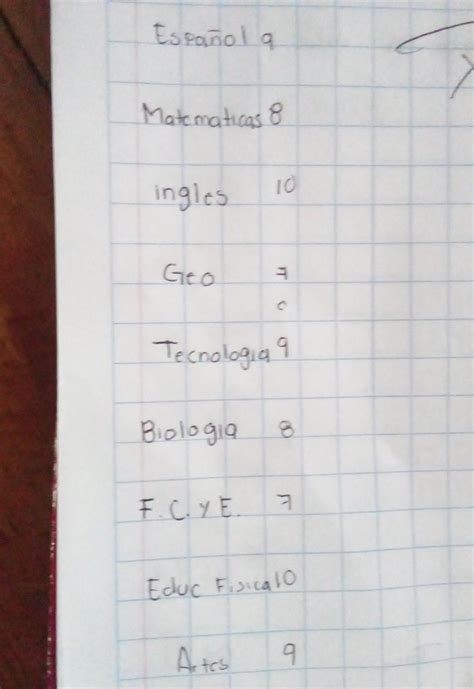 Español 9
Matematicas 8
ingles 10
Geo 7
Tecnologia 9
Biologia 8
F.C. y E. 7
Educ Fisica 10
Artes 9